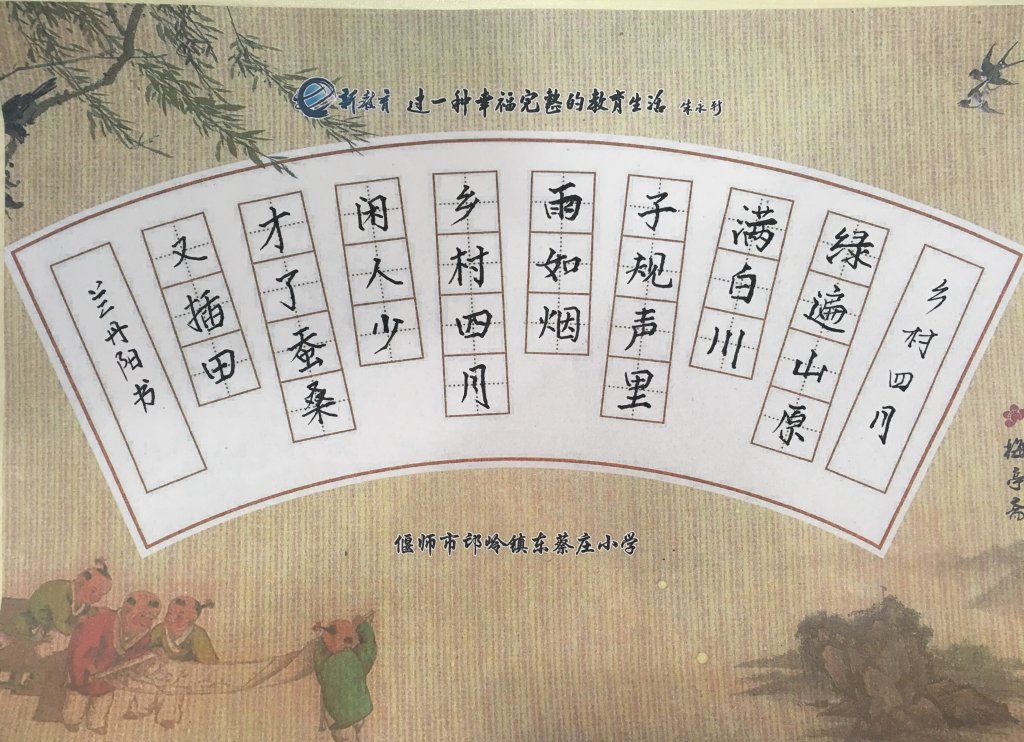 新教育 过一种幸福完整的教育生活 朱永新
乡村四月
绿遍山原
满白川
子规声里
雨如烟
乡村四月
闲人少
才了蚕桑
又插田
兰丹阳书
梅亭斋
偃师市邙岭镇东蔡庄小学